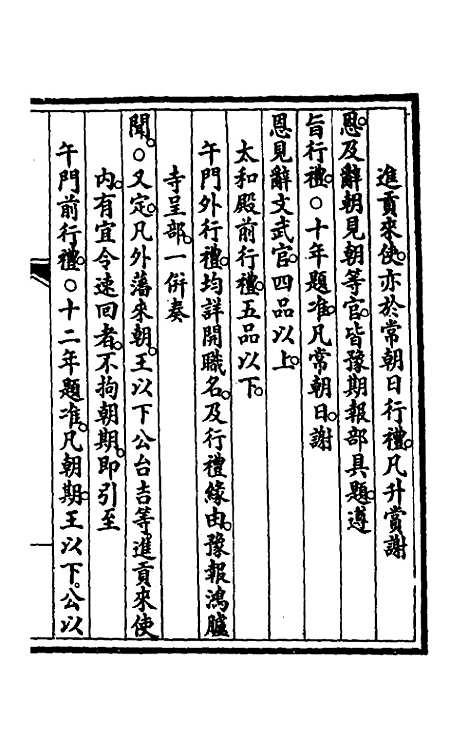 進貢來使。亦於常朝日行禮。凡升賞謝
恩。及辭朝見朝等官。皆豫期報部具題。遵
旨行禮。○十年題准。凡常朝日。謝
恩見辭文武官。四品以上。
太和殿前行禮。五品以下。
午門外行禮。均詳開職名。及行禮緣由。豫報鴻臚
寺呈部。一併奏
聞。○又定。凡外藩來朝。王以下公台吉等。進貢來使
內。有宜令速回者。不拘朝期。即引至
午門前行禮。○十二年題准。凡朝期。王以下。公以